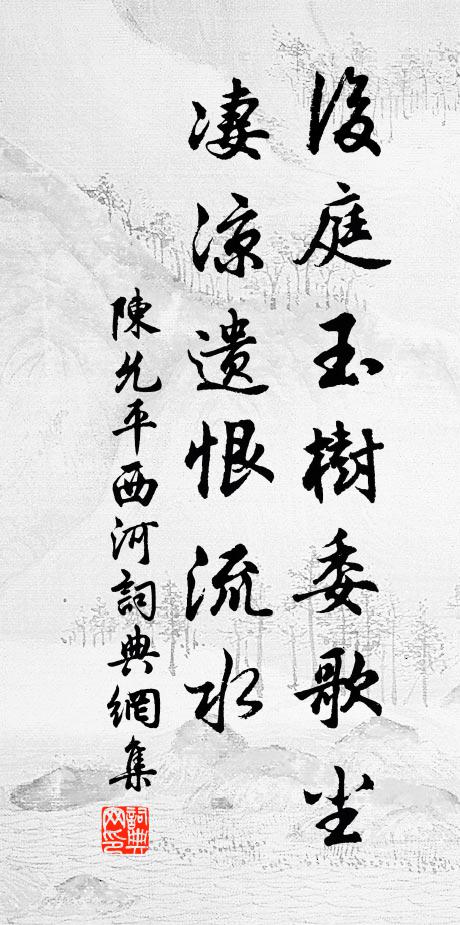 後庭玉樹委歌尘
凄涼遺恨流水
陳允平西河詞典網集
詞典网印